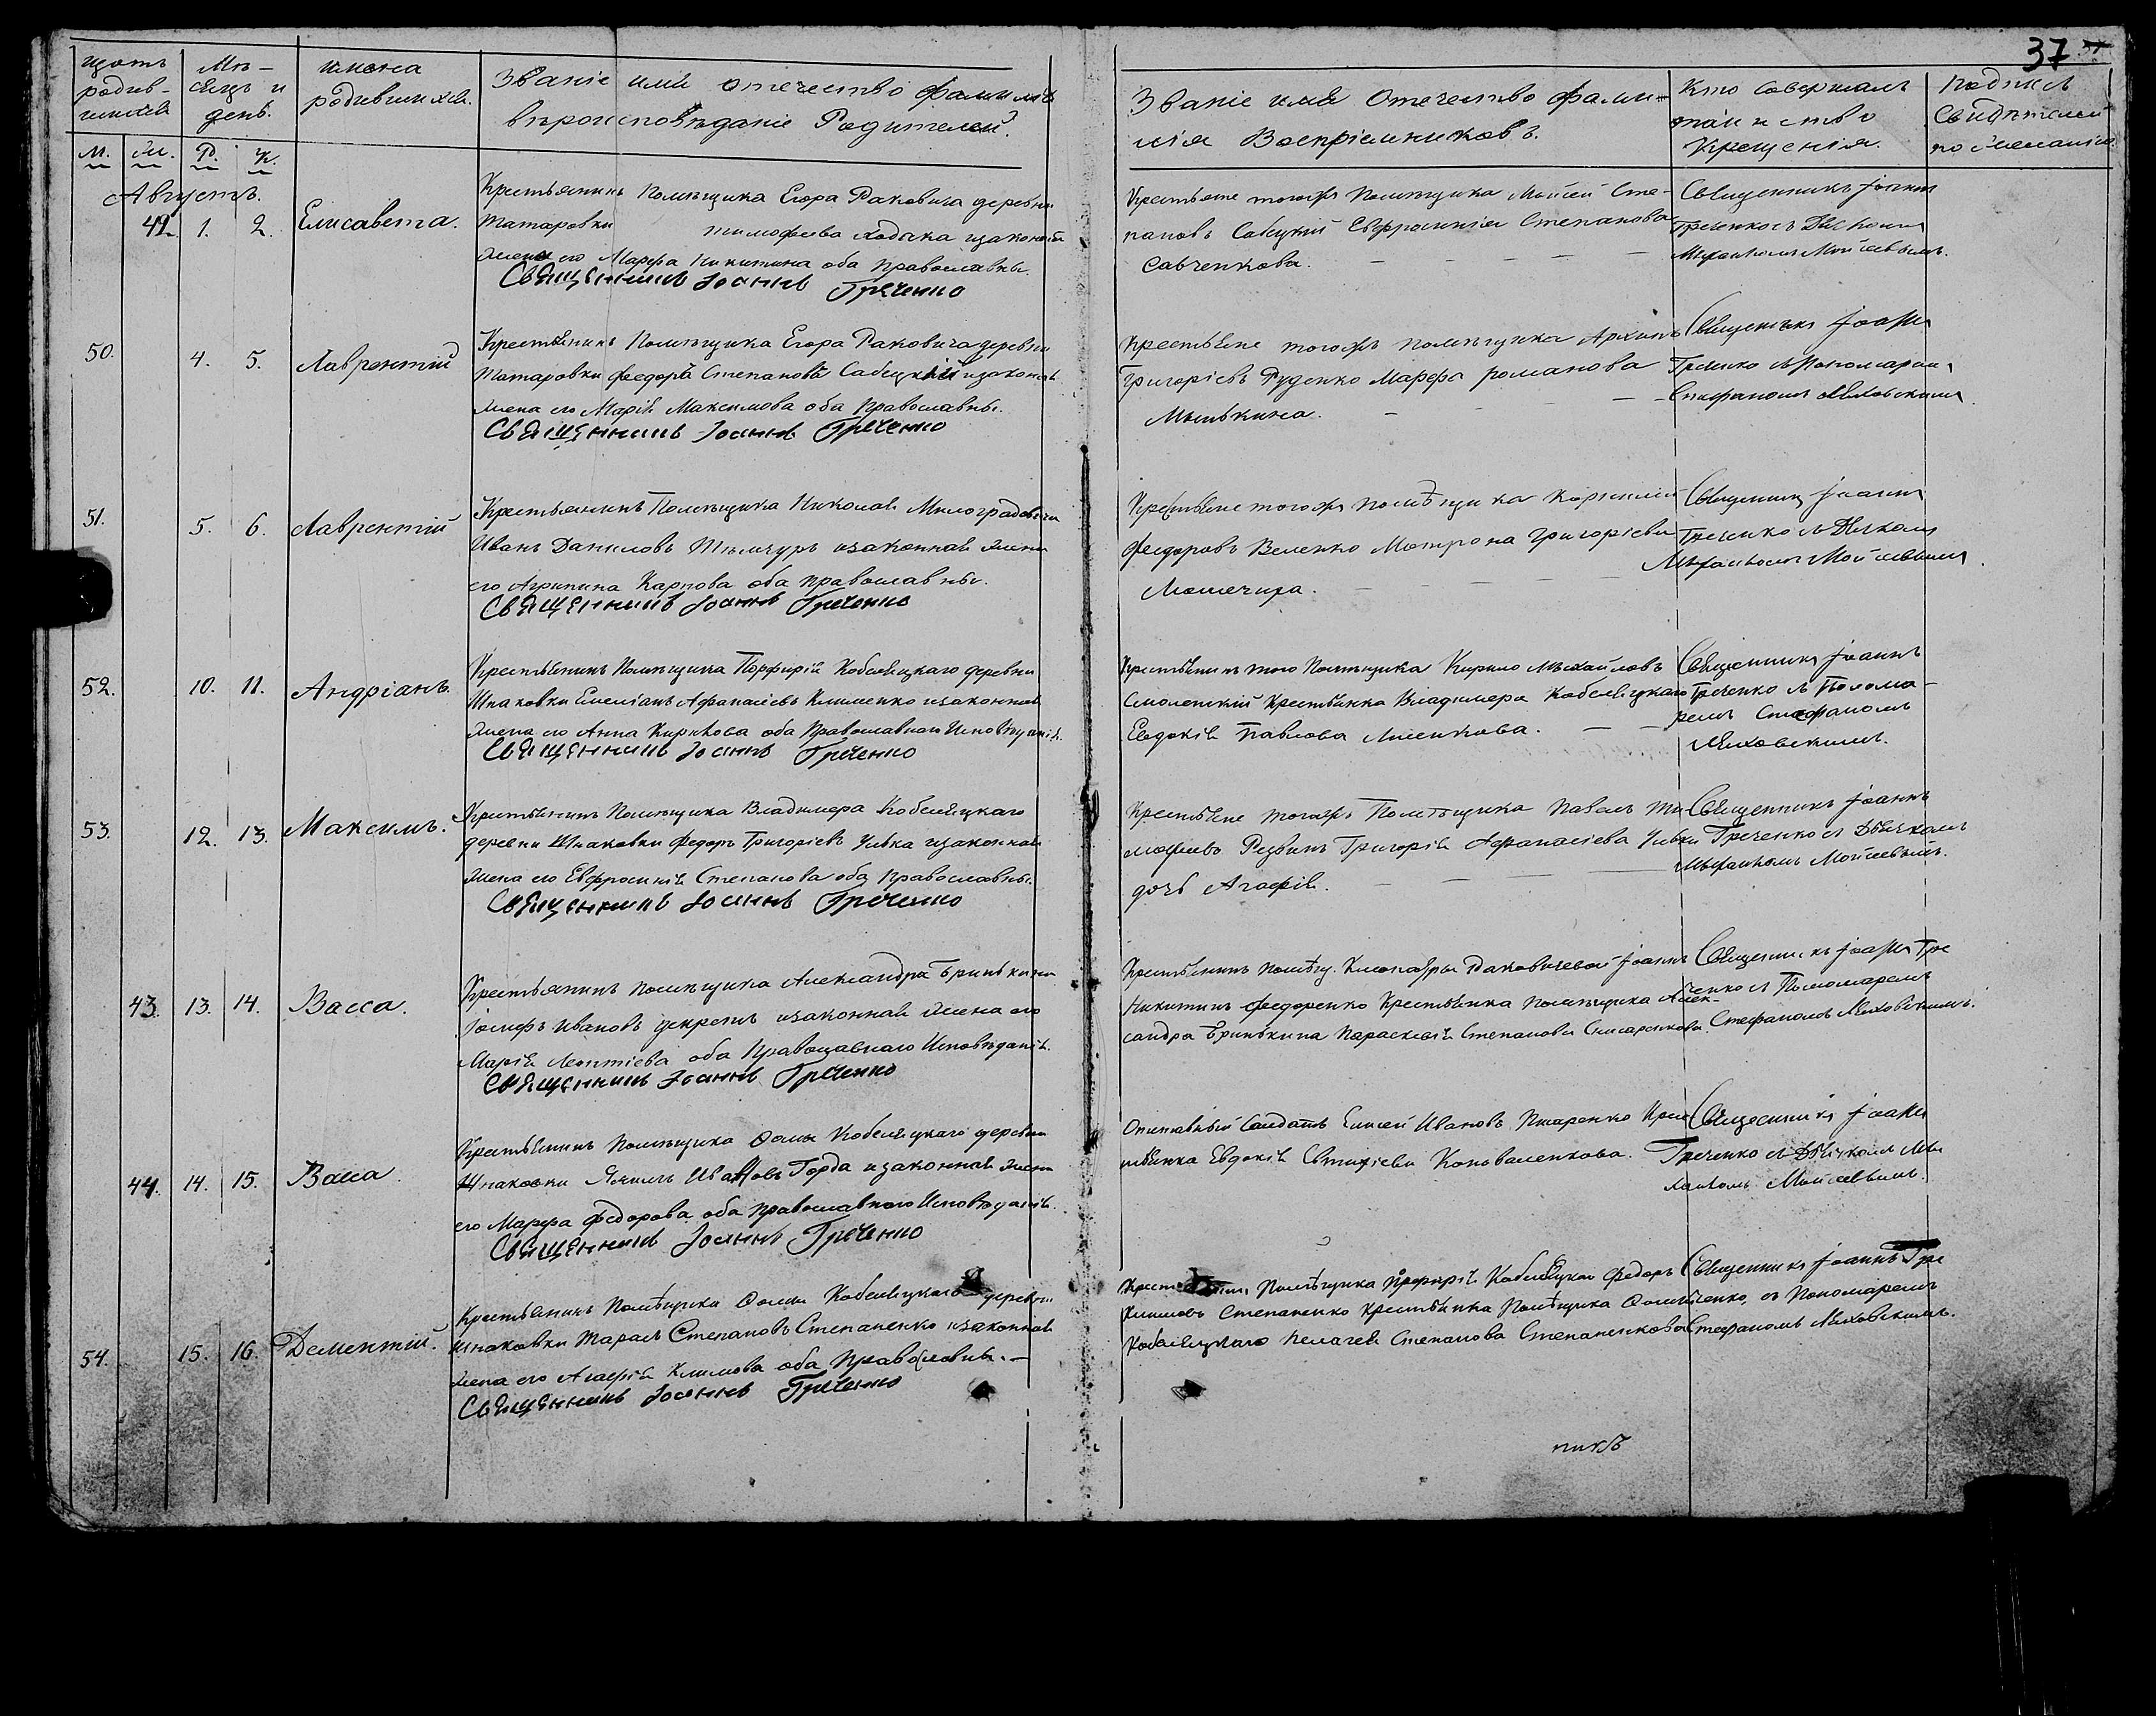 37
щотъ
родив-
шихся
Мѣ-
сяцъ и
день.
имена
родившихся.
Званіе имя отечество фамилія
вѣроисповѣданіе Родителей.
Званіе имя Отечество фами-
лія Воспріемниковъ.
Кто совершалъ
таинство
Крещенія.
Подписъ
Свидѣтелей
по желанію.
М. Ж. Р. К.
Августъ.
42. 1. 2. Елисавета.
Крестьянинъ Помѣщика Егора Раковича деревни
Татаровки тимофеева Ходыка изаконная
жена его Марфа Никитина оба православны.
Священникъ Іоаннъ Греченко
Крестьяне тогожъ Помѣщика Моисей Сте-
пановъ Савицкій Евфросинія Степанова
Савченкова.
Священникъ Іоаннъ
Греченко съ Дьячкомъ
Михаиломъ Моисеевымъ.
50. 4. 5. Лаврентій
Крестьянинъ Помѣщика Егора Раковича деревни
Татаровки Феодоръ Степановъ Савицкій изаконная
жена его Марія Максимова оба Православны.
Священникъ Іоаннъ Греченко
Крестьяне тогожъ помѣщика Архипъ
Григоріевъ Руденко Марфа романова
Священникъ Іоаннъ
Греченко съ Пономаремъ
Стефаномъ Маховскимъ.
51. 5. 6. Лаврентій
Крестьянинъ Помѣщика Николая Милорадовича
Иванъ Даниловъ изаконная жена
его Агрипина Карпова оба православны.
Священникъ Іоаннъ Греченко
Крестьяне тогожъ помѣщика Корнилій
Феодоровъ Веленко Матрона Григоріева
Священникъ Іоаннъ
Греченко съ Дьячкомъ
Михаиломъ Моисеевымъ.
52. 10. 11. Андріанъ.
Крестьянинъ Помѣщика Порфирія Кобеляцкаго деревни
Шпаковки Емеліанъ Афанасіевъ Клименко изаконная
жена его Анна Кирилова оба Православнаго Исповѣданія.
Священникъ Іоаннъ Греченко
Крестьянинъ того Помѣщика Кирило Михайловъ
Смоленскій Крестьянка Владимера Кобеляцкаго
Евдокія Павлова
Священникъ Іоаннъ
Греченко съ Понома-
ремъ Стефаномъ
Маховскимъ.
53. 12. 13. Максимъ.
Крестьянинъ Помѣщика Владимера Кобеляцкаго
деревни Шпаковки Федоръ Григоріевъ Улька изаконная
жена его Евфросинія Степанова оба Православны.
Священникъ Іоаннъ Греченко
Крестьяне тогожъ Помѣщика Павелъ Ти-
мофеевъ Григорія Афанасіева Ульки
дочь Агафія.
Священникъ Іоаннъ
Греченко съ Дьячкомъ
Михаиломъ Моисеевымъ.
43. 13. 14. Васса.
Крестьянинъ помѣщика Александра Бринькина
Іосифъ Ивановъ изаконная жена его
Марія Леонтіева оба Православнаго Исповѣданія.
Священникъ Іоаннъ Греченко
Крестьянинъ помѣщ. Клеопатры Раковичевой Іоаннъ
Никитинъ Федоренко Крестьянка помѣщика Алек-
сандра Бринькина Параскевія Степанова
Священникъ Іоаннъ Гре
ченко съ Пономаремъ
Стефаномъ Маховскимъ.
44. 14. 15. Васса.
Крестьянинъ Помѣщика Фомы Кобеляцкаго деревни
Шпаковки Якимъ Ивановъ Горда изаконная жена
его Марфа Федорова оба православного Исповѣданія.
Священникъ Іоаннъ Греченко
Солдатъ Елисей Ивановъ Крес-
тьянка Евдокія Коноваленкова.
Священникъ Іоаннъ
Греченко съ Дьячкомъ Ми
хаиломъ Моисеевымъ.
54. 15. 16. Дементій.
Крестьянинъ Помѣщика Фомы Кобеляцкаго деревни
Шпаковки Тарасъ Степановъ Степаненко изаконная
жена его Агафія Климова оба Православны.
Священникъ Іоаннъ Греченко
Помѣщика Порфирія Кобеляцкаго Федоръ
Климовъ Степаненко Крестьянка Помѣщика Фомы
Кобеляцкаго Пелагея Степанова Степаненкова
Священникъ Іоаннъ Гре
ченко, съ Пономаремъ
Стефаномъ Маховскимъ.